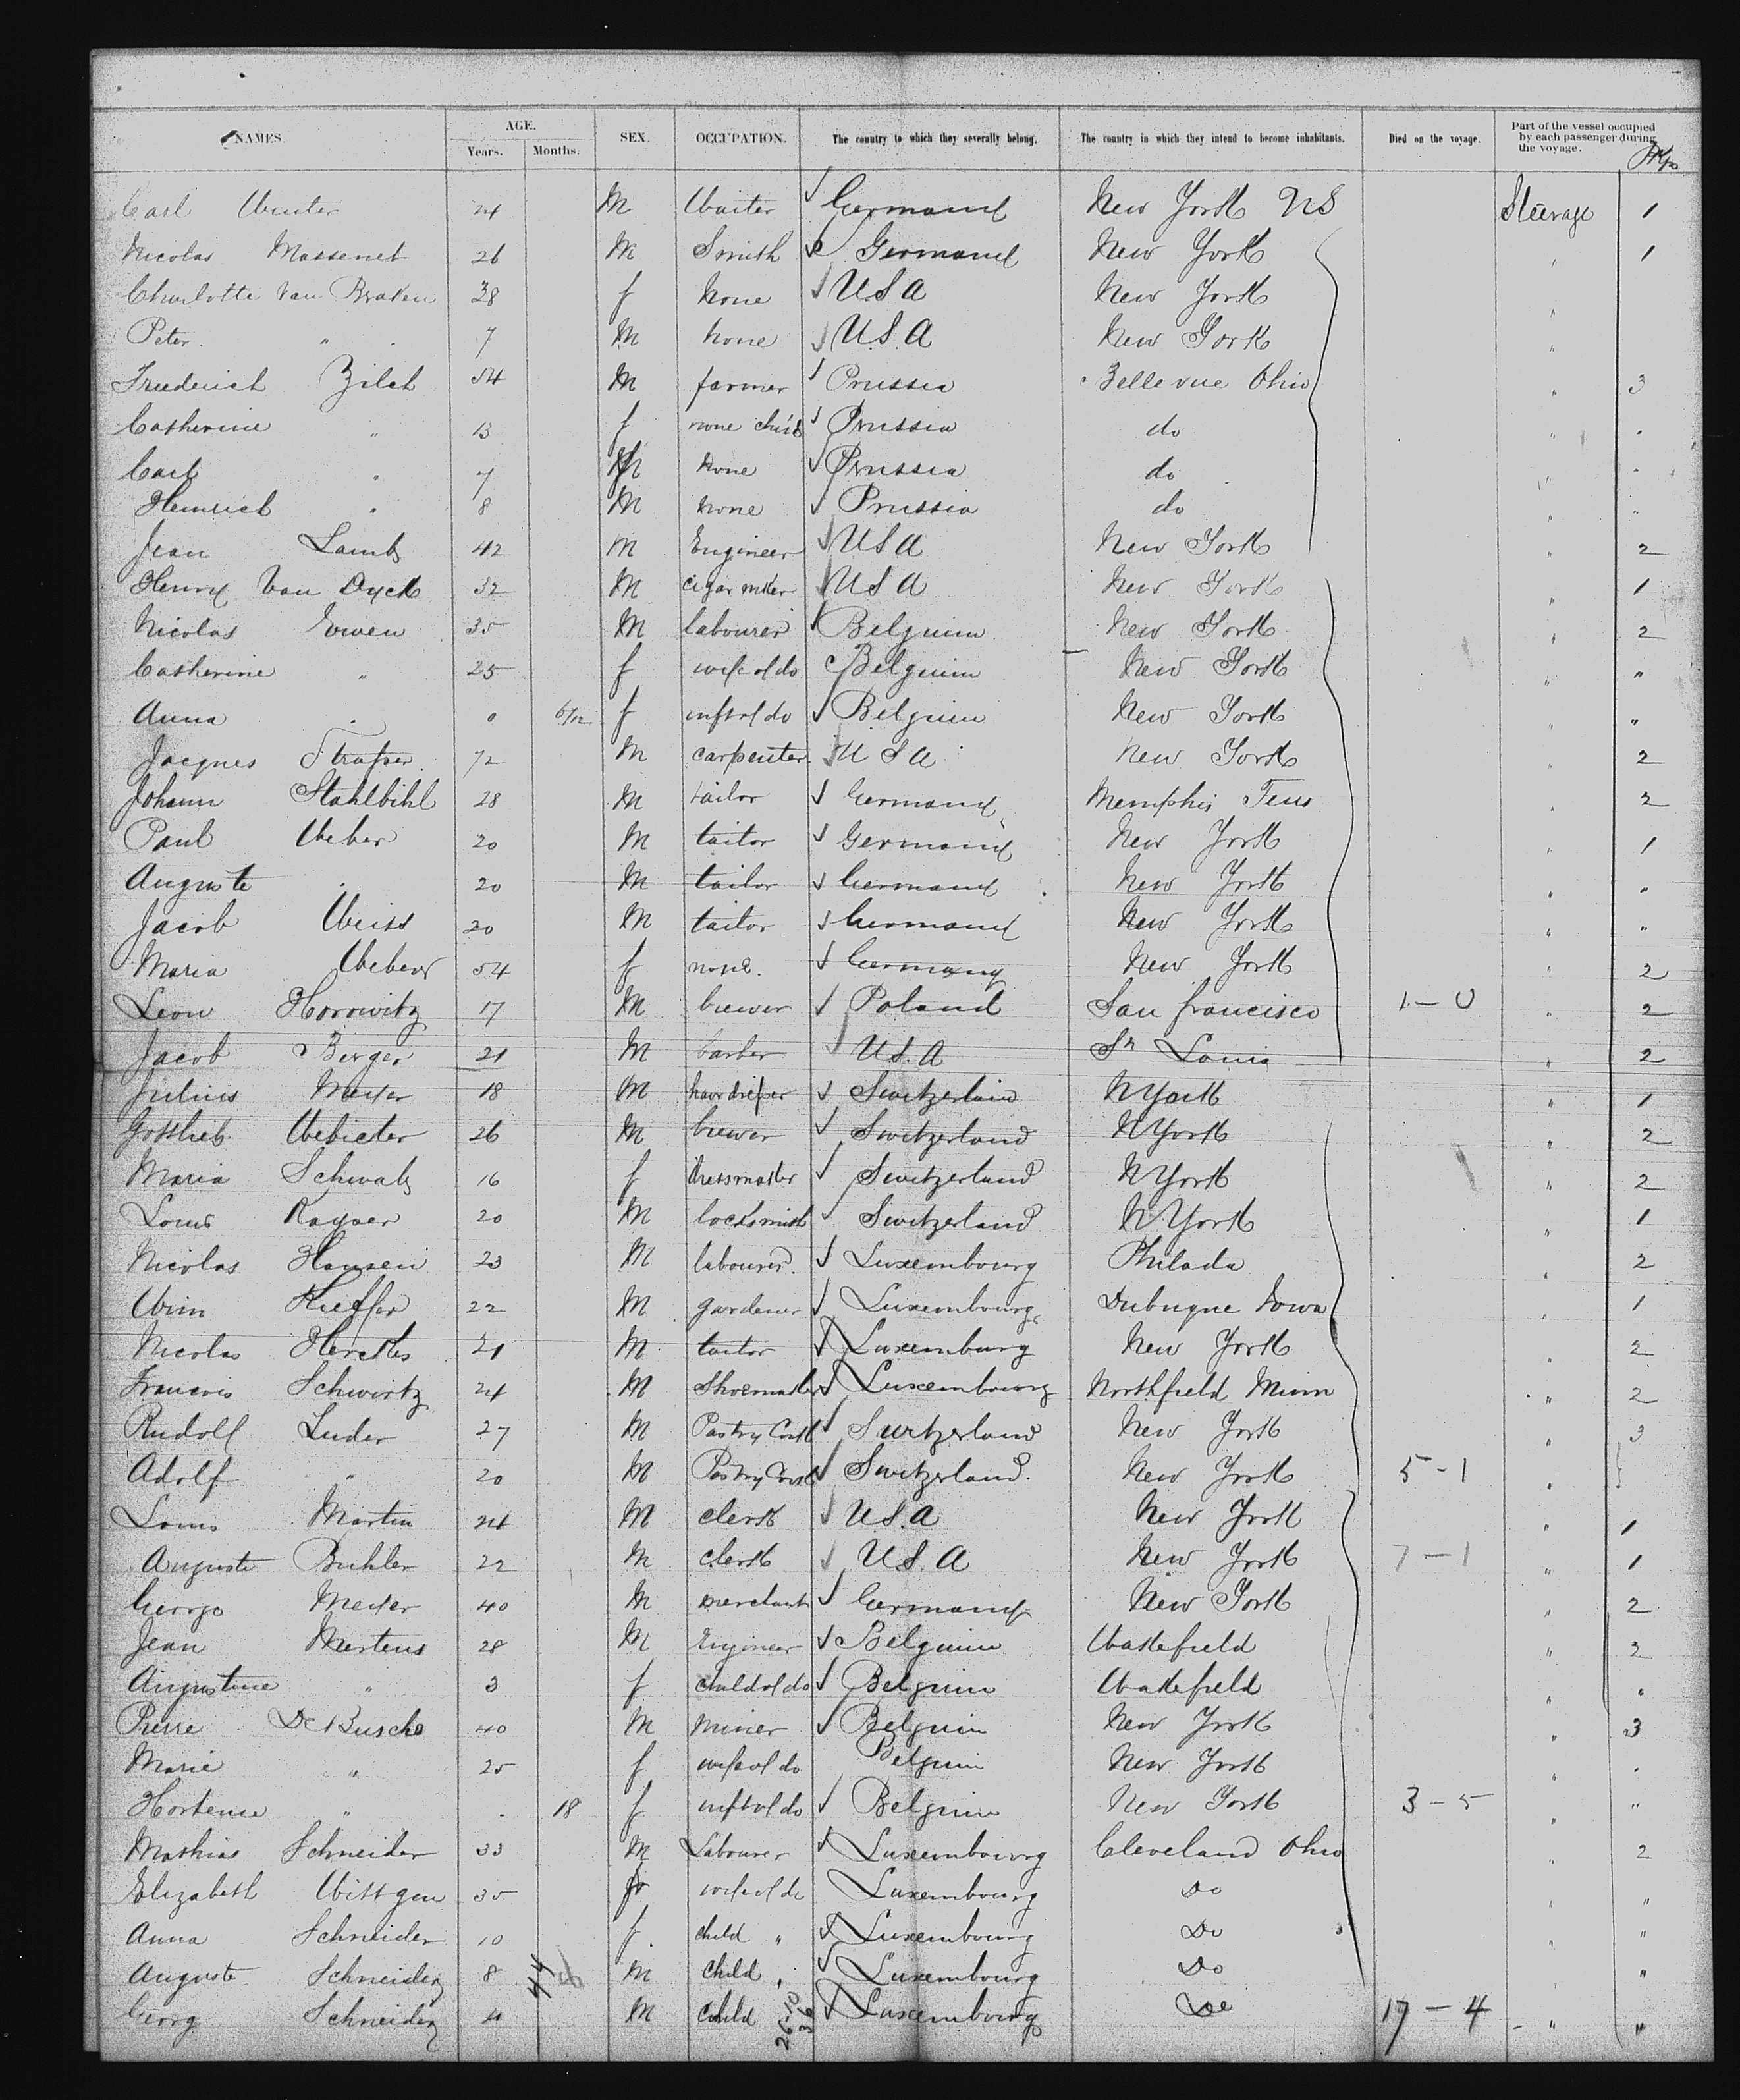 NAMES. AGE. Years. Months. SEX. OCCUPATION. The country to which they severally belong. The country in which they intend to become inhabitants. Died on the voyage. Part of the vessel occupied by each passenger during the voyage.
Carl Winter 24 M Waiter Germany New York US Steerage 1
Nicolas Massenet 26 M Smith Germany New York " 1
Charlotte Van Braken 38 f None USA New York "
Peter " 7 M None U.S.A New York "
Friederich Zilch 54 M farmer Prussia Bellevue Ohio " 3
Catherine " 13 f none child Prussia do "
Carl " 7 M None Prussia do "
Heinrich " 8 M None Prussia do "
Jean Lamb 42 M Engineer USA New York " 2
Henry Van Dyck 32 M cigar mker USA New York " 1
Nicolas Ewen 35 M labourer Belgium New York " 2
Catherine " 25 f wife of do Belgium New York " "
Anna " 0 6/12 f inft of do Belgium New York " "
Jacques 72 M carpenter USA New York " 2
Johann Stahlbihl 28 M tailor Germany Memphis Tens " 2
Paul Weber 20 M tailor Germany New York " 1
Auguste " 20 M tailor Germany New York " "
Jacob Weiss 20 M tailor Germany New York " "
Maria Weber 54 f none. Germany New York " 2
Leon Horowitz 17 M brewer Poland San francisco 1-0 " 2
Jacob Berger 21 M barber U.S.A St Louis " 2
Julius Meyer 18 M hairdresser Switzerland NYork " 1
Gottlieb 26 M brewer Switzerland NYork " 2
Maria Schwab 16 f dressmaker Switzerland NYork " 2
Louis Kayser 20 M locksmith Switzerland NYork " 1
Nicolas Hansen 23 M labourer Luxembourg Philada " 2
Wim Kieffer 22 M gardener Luxembourg Dubuque Iowa " 1
Nicolas Herckes 21 M tailor Luxembourg New York " 2
Francois Schwirtz 24 M Shoemaker Luxembourg Northfield Minn " 2
Rudolf Luder 27 M Pastry Cook Switzerland New York " 3
Adolf " 20 M Pastry Cook Switzerland. New York 5-1 "
Louis Martin 24 M clerk U.S.A New York " 1
Auguste Buhler 22 M clerk U.S.A New York 7-1 " 1
George Meyer 40 M merchant Germany New York " 2
Jean Mertens 28 M Engineer Belgium Wakefield " 2
Augustine " 3 f child of do Belgium Wakefield " "
Pierre De Busche 40 M miner Belgium New York " 3
Marie " 25 f wife of do Belgium New York "
Hortense " 18 f inft of do Belgium New York 3-5 " "
Mathias Schneider 33 M Labourer Luxembourg Cleveland Ohio " 2
Elizabeth Wittgen 35 f wife of do Luxembourg Do " "
Anna Schneider 10 f child " Luxembourg Do " "
Auguste Schneider 8 M child " Luxembourg Do " "
Georg Schneider 4 M child Luxembourg Do 17-4 " "
44
26-10
36